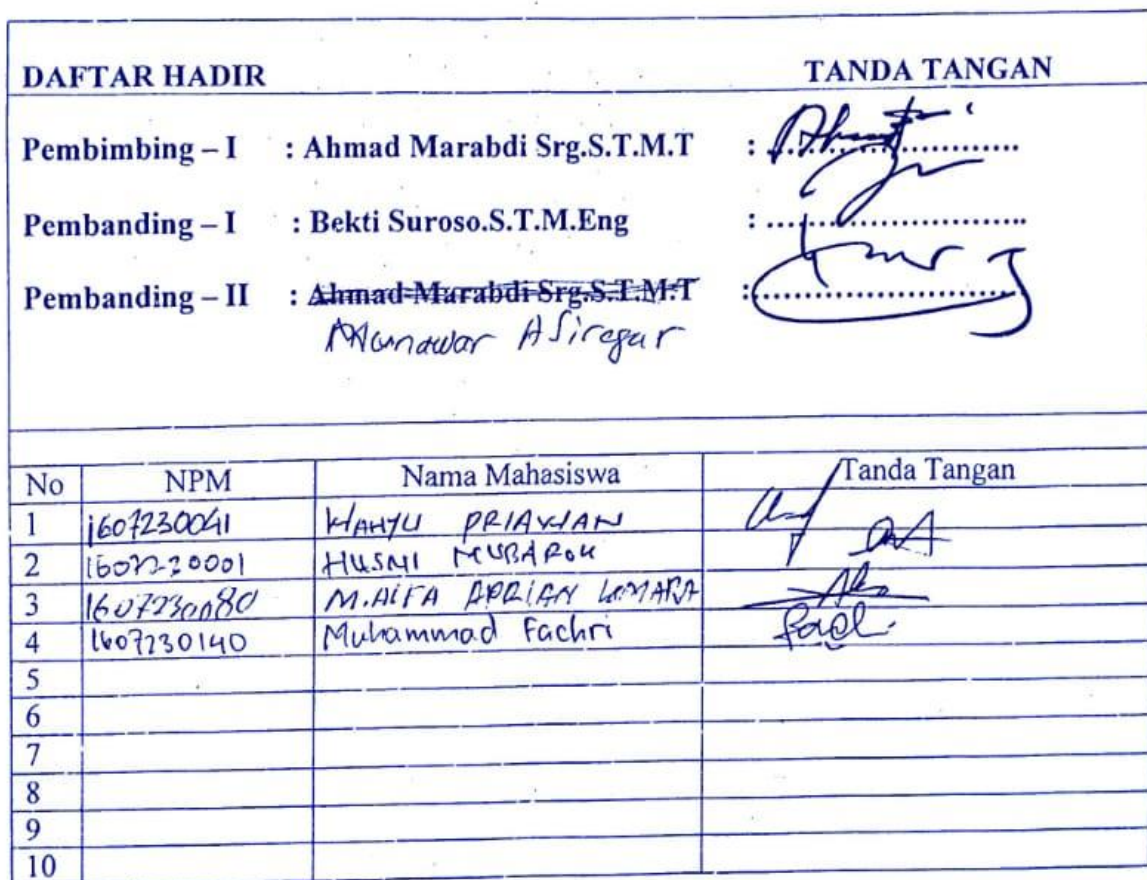 DAFTAR HADIR TANDA TANGAN
Pembimbing – I : Ahmad Marabdi Srg.S.T.M.T : ........................
Pembanding – I : Bekti Suroso.S.T.M.Eng : ........................
Pembanding – II : Ahmad Marabdi Srg.S.T.M.T : ........................
Munawar A Siregar
No NPM Nama Mahasiswa Tanda Tangan
1 1607230041 WAHYU
2 HUSNI MUBAROK
3 1607230080 M. ALFA APRIAN
4 1607230140 Muhammad Fachri
5
6
7
8
9
10